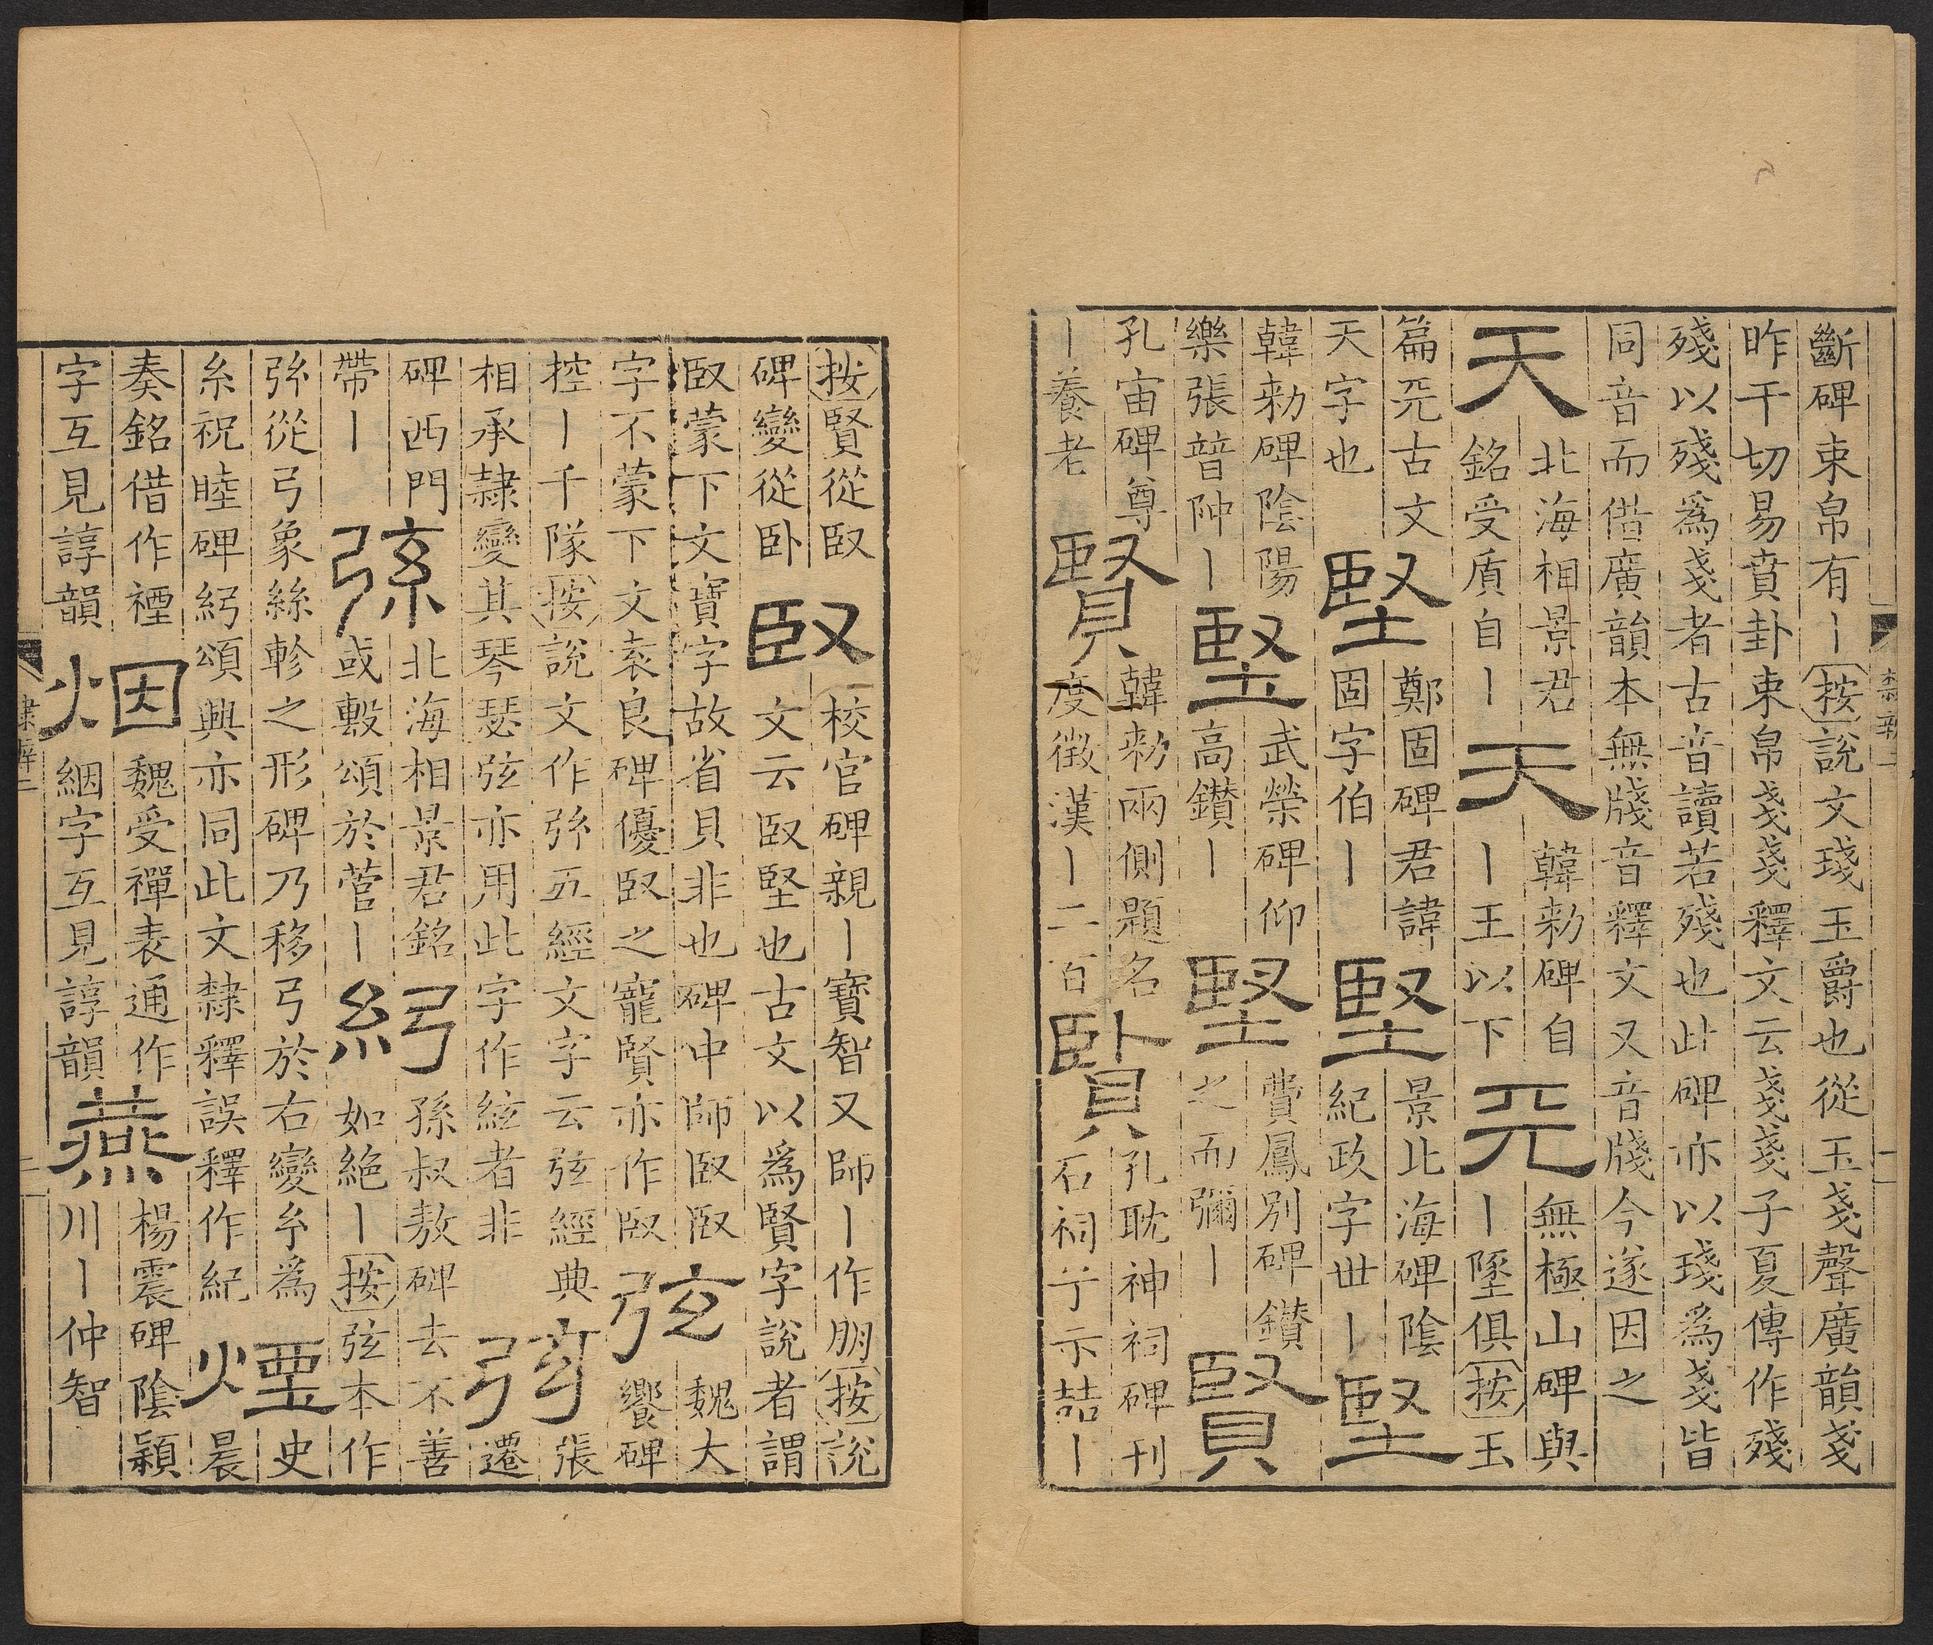 斷碑束帛有丨按說文琖玉爵也從玉戔聲廣韻戔
昨干切易賁卦束帛戔戔釋文云戔戔子夏傳作殘
殘以殘爲戔者古音讀若殘也此碑亦以琖爲戔皆
同音而借廣韻本無牋音釋文又音牋今遂因之
天
北海相景君
銘受盾自丨
天
韓勑碑自
丨王以下
兲
無極山碑與
丨墬俱按玉
篇兲古文
天字也
堅
鄭固碑君諱
固字伯丨
堅
景北海碑陰
紀政字世丨
堅
韓勑碑陰陽
樂張普仲丨
堅
武榮碑仰
高鑽丨
堅
費鳳別碑鑽
之而彌丨
賢
孔宙碑尊
丨養老
賢
韓勑兩側題名
度徵漢丨二百
賢
孔耽神祠碑刊
石祠兮示喆丨
按賢從臤
碑變從臥
臤
校官碑親丨寶智又師丨作朋按說
文云臤堅也古文以爲賢字說者謂
臤蒙下文寶字故省貝非也碑中師臤臤
字不蒙下文袁良碑優臤之寵賢亦作臤
弦
魏大
饗碑
控丨千隊按說文作弦五經文字云弦經典
相承隸變其琴瑟弦亦用此字作絃者非
弦
張
遷
碑西門
帶丨
弦
北海相景君銘
或斁頌於管丨
紭
孫叔敖碑去不善
如絕丨按弦本作
弦從弓象絲軫之形碑乃移弓於右變幺爲
糸祝睦碑紭頌興亦同此文隸釋誤釋作紀
煙
史
晨
奏銘借作禋
字互見諄韻
烟
魏受禪表通作
絪字互見諄韻
燕
楊震碑陰潁
川丨仲智